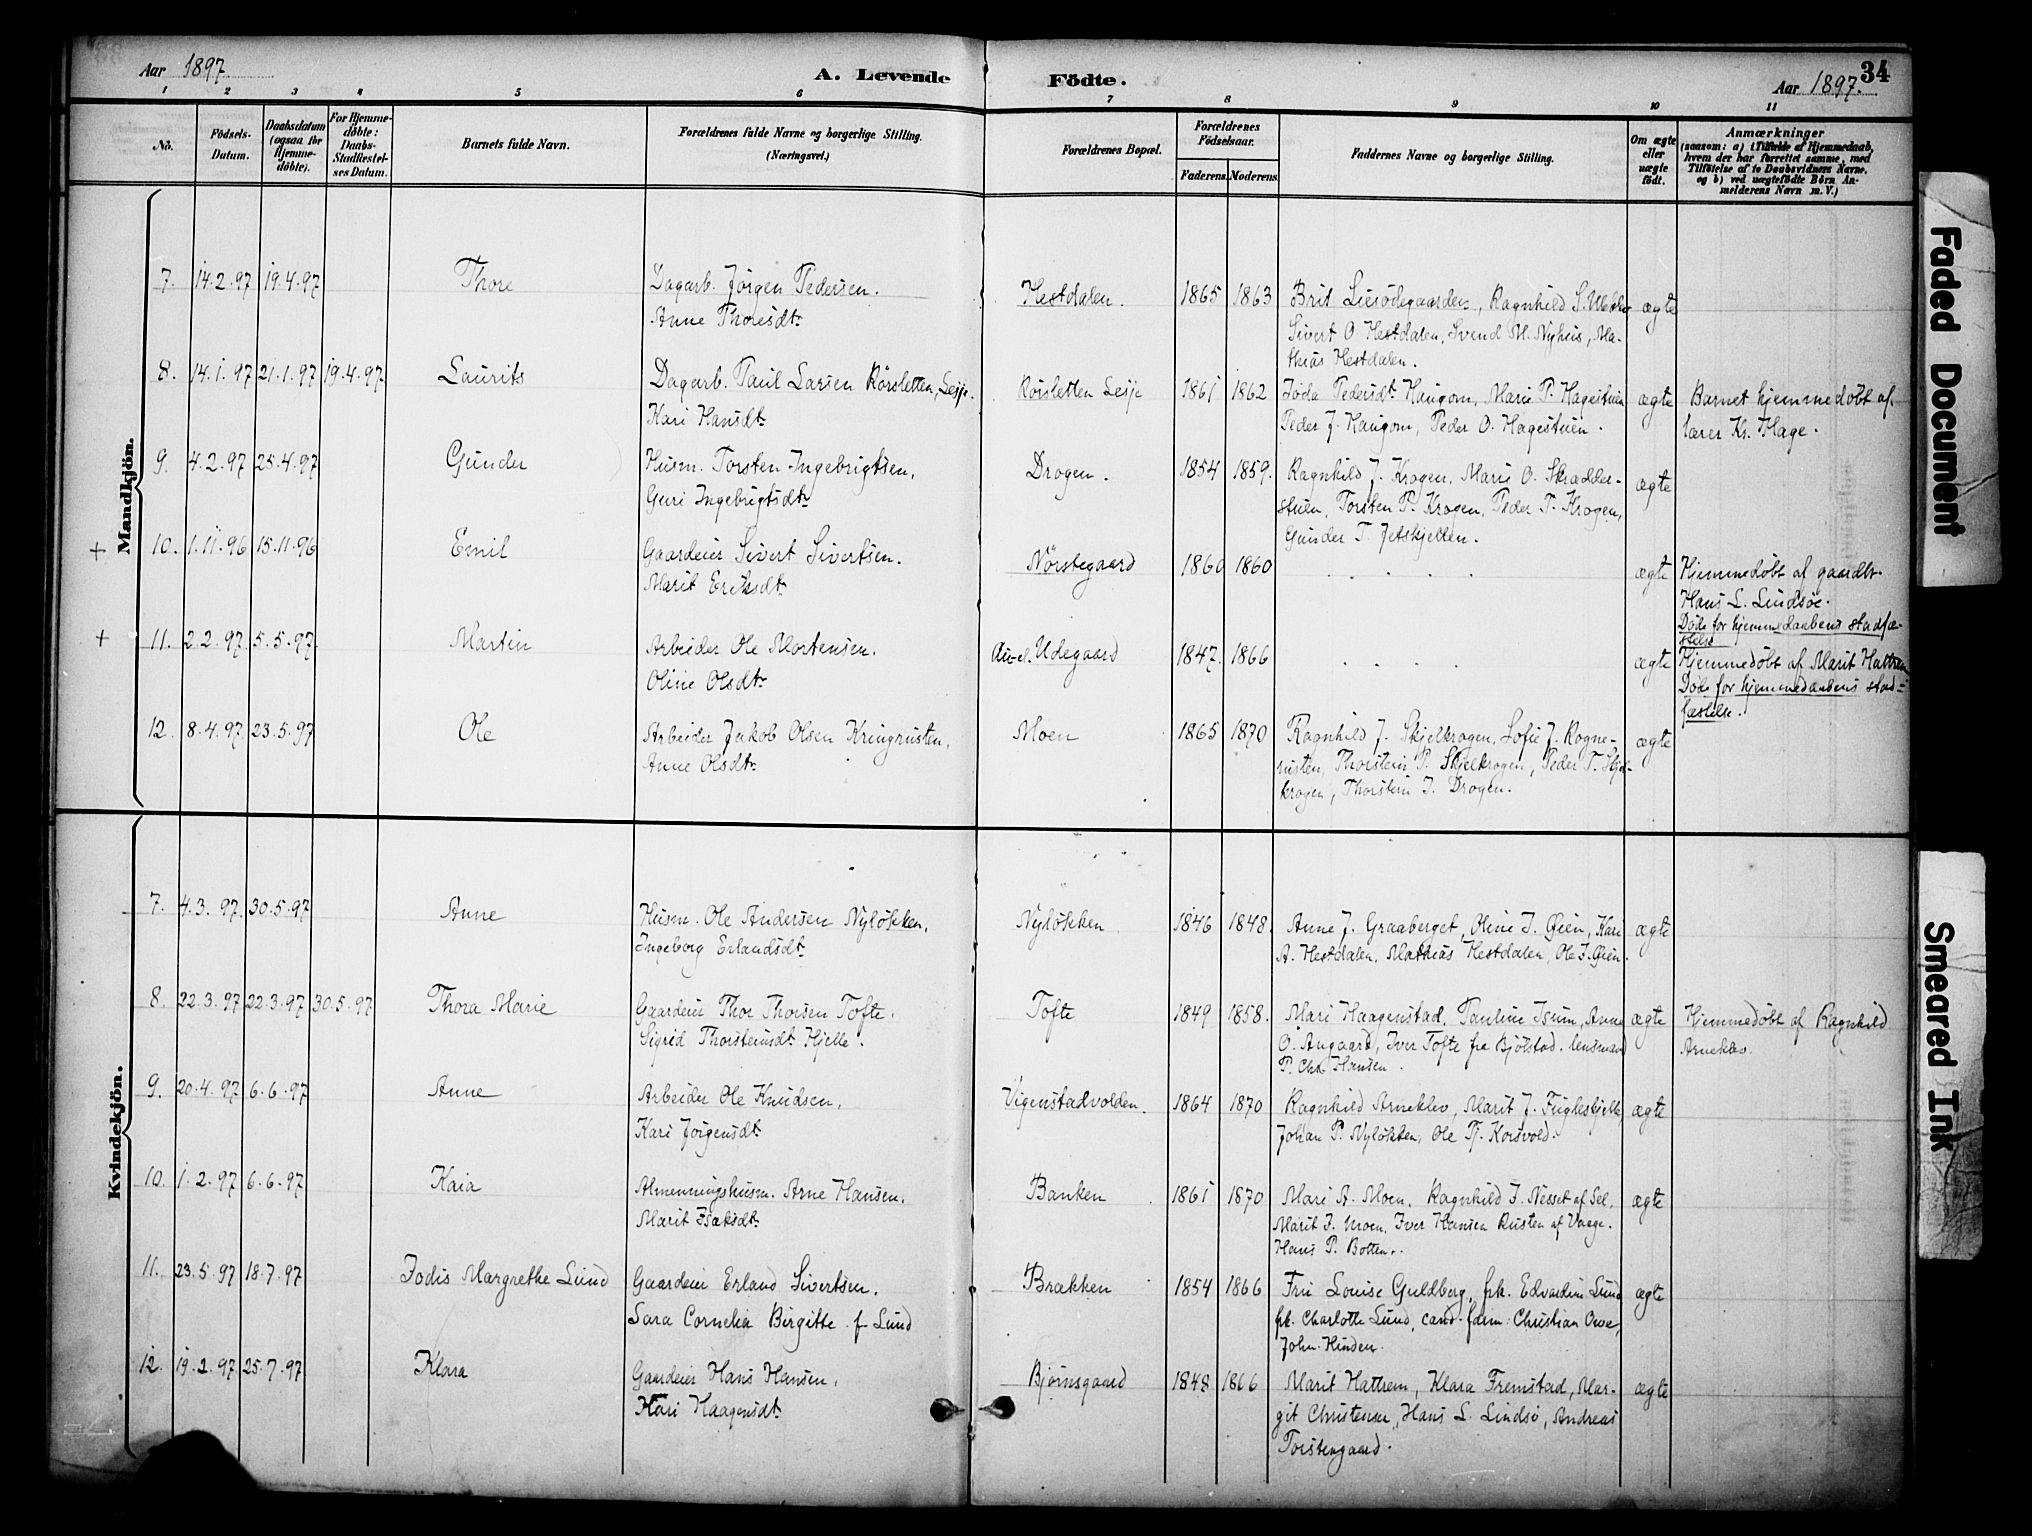 Aar 1897
A. Levende Födte.
Aar 1897.
34
1 2 3 4 5 6 7 8 9 10 11
No.
Födsels-Datum.
Daabsdatum (ogsaa för Hjemme-döbte).
For Hjemme-döbte: Daabs-Stadfæstel-ses Datum.
Barnets fulde Navn.
Forældrenes fulde Navne og borgerlige Stilling.
(Næringsvei.)
Forældrenes Bopæl.
Forældrenes Födselsaar.
Faderens. Moderens.
Faddernes Navne og borgerlige Stilling.
Om ægte eller uægte födt.
Anmærkninger
(saasom: a) i Tilfælde af Hjemmedaab,
hvem der har forrettet samme, med
Tilföielse af to Daabsvidners Navne,
og b) ved uægtefödte Börn An-
melderens Navn m. V.)
Mandkjön.
7. 14.2.97 19.4.97 Thore Dagarb. Jørgen Pedersen. Hestdalen. 1865 1863 Brit Ragnhild S. ægte
Anne Thoresdtr Sivert O Hestdalen, Svend M. Nyhus, Ma-
thias Hestdalen.
8. 14.1.97 21.1.97 19.4.97 Laurits Dagarb. Paul Larsen Rørsletten, Lesje. Rørsletten Lesje 1861 1862 Pedersdt. Haugom, Marie P. Hagestuen ægte Barnet hjemmedøbt af
Kari Hansdtr Peder J. Haugom, Peder O. Hagestuen. lærer Kr. Hage.
9. 4.2.97 25.4.97 Gunder Husm. Torsten Ingebrigtsen, Drogen. 1854 1859. Ragnhild J. Krogen, Marie O. Skrædder- ægte
Guri Ingebrigtsdtr stuen, Torsten P. Krogen, Peder T. Krogen,
Gunder T. Jetskjellen.
+ 10. 1.11.96 15.11.96 Emil Gaardeier Sivert Sivertsen. Nørstegaard 1860 1860 . . . . ægte Hjemmedøbt af gaardbr.
Marit Eriksdtr Hans L. Lindsøe.
Døde før hjemmedaabens stadfæ-
stelse
+ 11. 2.2.97 5.5.97 Martin Arbeider Ole Mortensen. Udegaard 1847. 1866 . . . . ægte Hjemmedøbt af Marit Hattrem
Oline Olsdtr Døde før hjemmedaabens stad-
fæstelse.
12. 8.4.97 23.5.97 Ole Arbeider Jakob Olsen Kringrusten, Moen 1865 1870 Ragnhild J. Skjelkrogen, Sofie J. Rogne- ægte
Anne Olsdtr rusten, Thorstein P. Skjelkrogen, Peder T. Skjel-
krogen, Thorstein I. Drogen.
Kvindekjön.
7. 4.3.97. 30.5.97 Anne Husm. Ole Andersen Nyløkken, Nyløkken 1846 1848. Anne J. Graaberget, Oline I. Øien, Kari ægte
Ingeborg Erlandsdt. A. Hestdalen, Mathias Hestdalen, Ole I. Øien.
8. 22.3.97 22.3.97 30.5.97 Thora Marie Gaardeier Thor Thorsen Tofte. Tofte 1849 1858. Mari Haagenstad, Pauline Isum, Anne ægte Hjemmedøbt af Ragnhild
Sigrid Thorsteinsdt. Hjelle. O. Angaard, Iver Tofte fra Bjølstad. lensmand Arneklev.
P. Chr. Hansen.
9. 20.4.97 6.6.97 Anne Arbeider Ole Knudsen, Vigenstadvolden. 1864 1870 Ragnhild Arneklev, Marit J. Fugleskjelle, ægte
Kari Jørgensdt. Johan P. Nyløkken, Ole Korsvold.
10. 1.2.97 6.6.97 Kaia Almenningshusm. Arne Hansen, Banken 1861 1870 Mari A. Moen, Ragnhild I. Nesset af Sel, ægte
Marit Isaksdt. Marit J. Moen, Iver Hansen Rusten af Vaage.
Hans P. Botten.
11. 23.5.97 18.7.97 Jodis Margrethe Lund Gaardeier Erland Sivertsen, Brækken 1854 1866 Fru Louise Guldberg, frk. Edvardine Lund ægte
Sara Cornelia Birgitte f. Lund frk. Charlotte Lund, cand. farm. Christian Owe,
John Hinden.
12. 19.2.97 25.7.97 Klara Gaardeier Hans Hansen, Bjørnsgaard 1848 1866 Marit Hattrem, Klara Fremstad, Mar- ægte
Kari Haagensdt. git Christensen, Hans L. Lindsø, Andreas
Torstengaard.
Faded Document
Smeared Ink